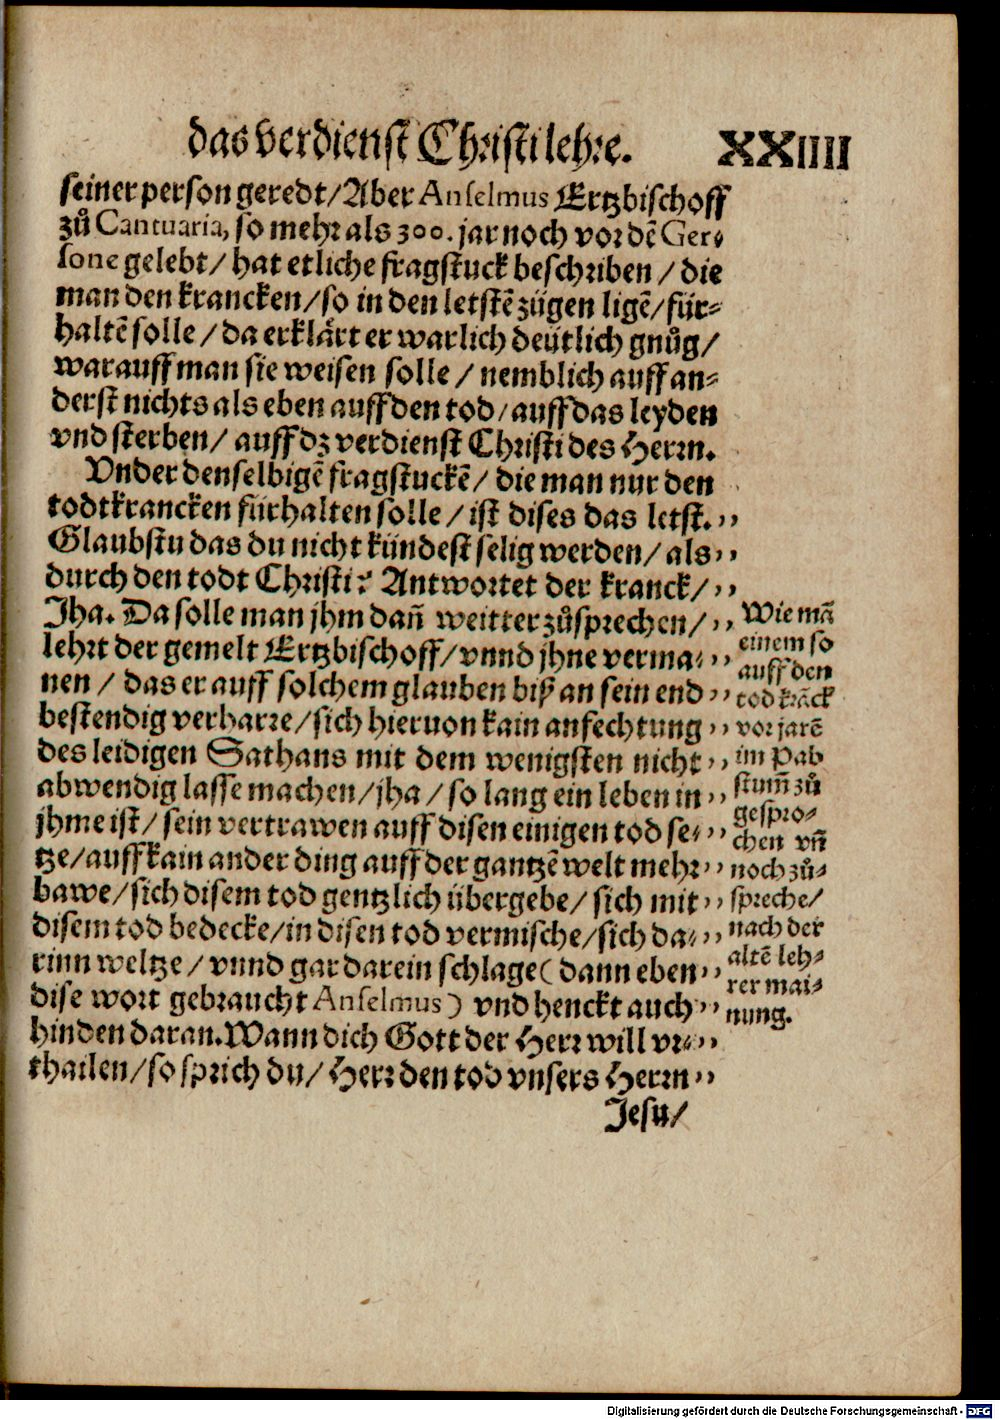 das verdienst Christi lehre. XXIIII
seiner person geredt/Aber Anselmus Ertzbischoff
zů Cantuaria, so mehr als 300. jar noch vor dẽ Ger⸗
sone gelebt/ hat etliche fragstuck beschriben / die
man den krancken/so in den letstẽ zügen ligẽ/für⸗
haltẽ solle / da erklärt er warlich deütlich gnůg/
warauff man sie weisen solle / nemblich auff an⸗
derst nichts als eben auff den tod/ auff das leyden
vnd sterben/ auff dz verdienst Christi des Herrn.
Vnder denselbigẽ fragstuckẽ/ die man nur den
todtkrancken fürhalten solle / ist dises das letst. ,,
Glaubstu das du nicht kündest selig werden/ als ,,
durch den todt Christi? Antwortet der kranck/ ,,
Jha. Da solle man jhm dañ weitter zůsprechen/ ,,
lehrt der gemelt Ertzbischoff/vnnd jhne verma⸗ ,,
nen / das er auff solchem glauben biß an sein end ,,
bestendig verharre/sich hieruon kain anfechtung ,,
des leidigen Sathans mit dem wenigsten nicht ,,
abwendig lasse machen/jha / so lang ein leben in ,,
jhme ist/ sein vertrawen auff disen einigen tod se⸗ ,,
tze/auff kain ander ding auff der gantzẽ welt mehr ,,
bawe/sich disem tod gentzlich übergebe/ sich mit ,,
disem tod bedecke/in disen tod vermische/sich da⸗ ,,
rinn weltze / vnnd gar darein schlage( dann eben ,,
dise wort gebraucht Anselmus) vnd henckt auch ,,
hinden daran. Wann dich Gott der Herr will vr⸗ ,,
thailen/so sprich du/ Herr den tod vnsers Herrn ,,
Jesu/
Wie mã
einem so
auff den
tod krãck
vor jarẽ
im Pab
stum̃ zů
gespro⸗
chen vñ
noch zů⸗
spreche/
nach der
altẽ leh⸗
rer mai⸗
nung.
Digitalisierung gefördert durch die Deutsche Forschungsgemeinschaft - DFG